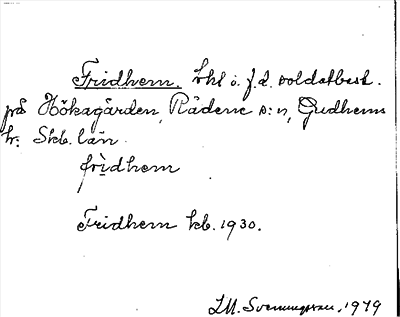 Fridhem. lht i f.d. soldatbest.
på Hökagården, Rådene s:n, Gudhems
h. Skb. län
fridhem
Fridhem kb. 1930.
I.M. Svenungsson, 1979